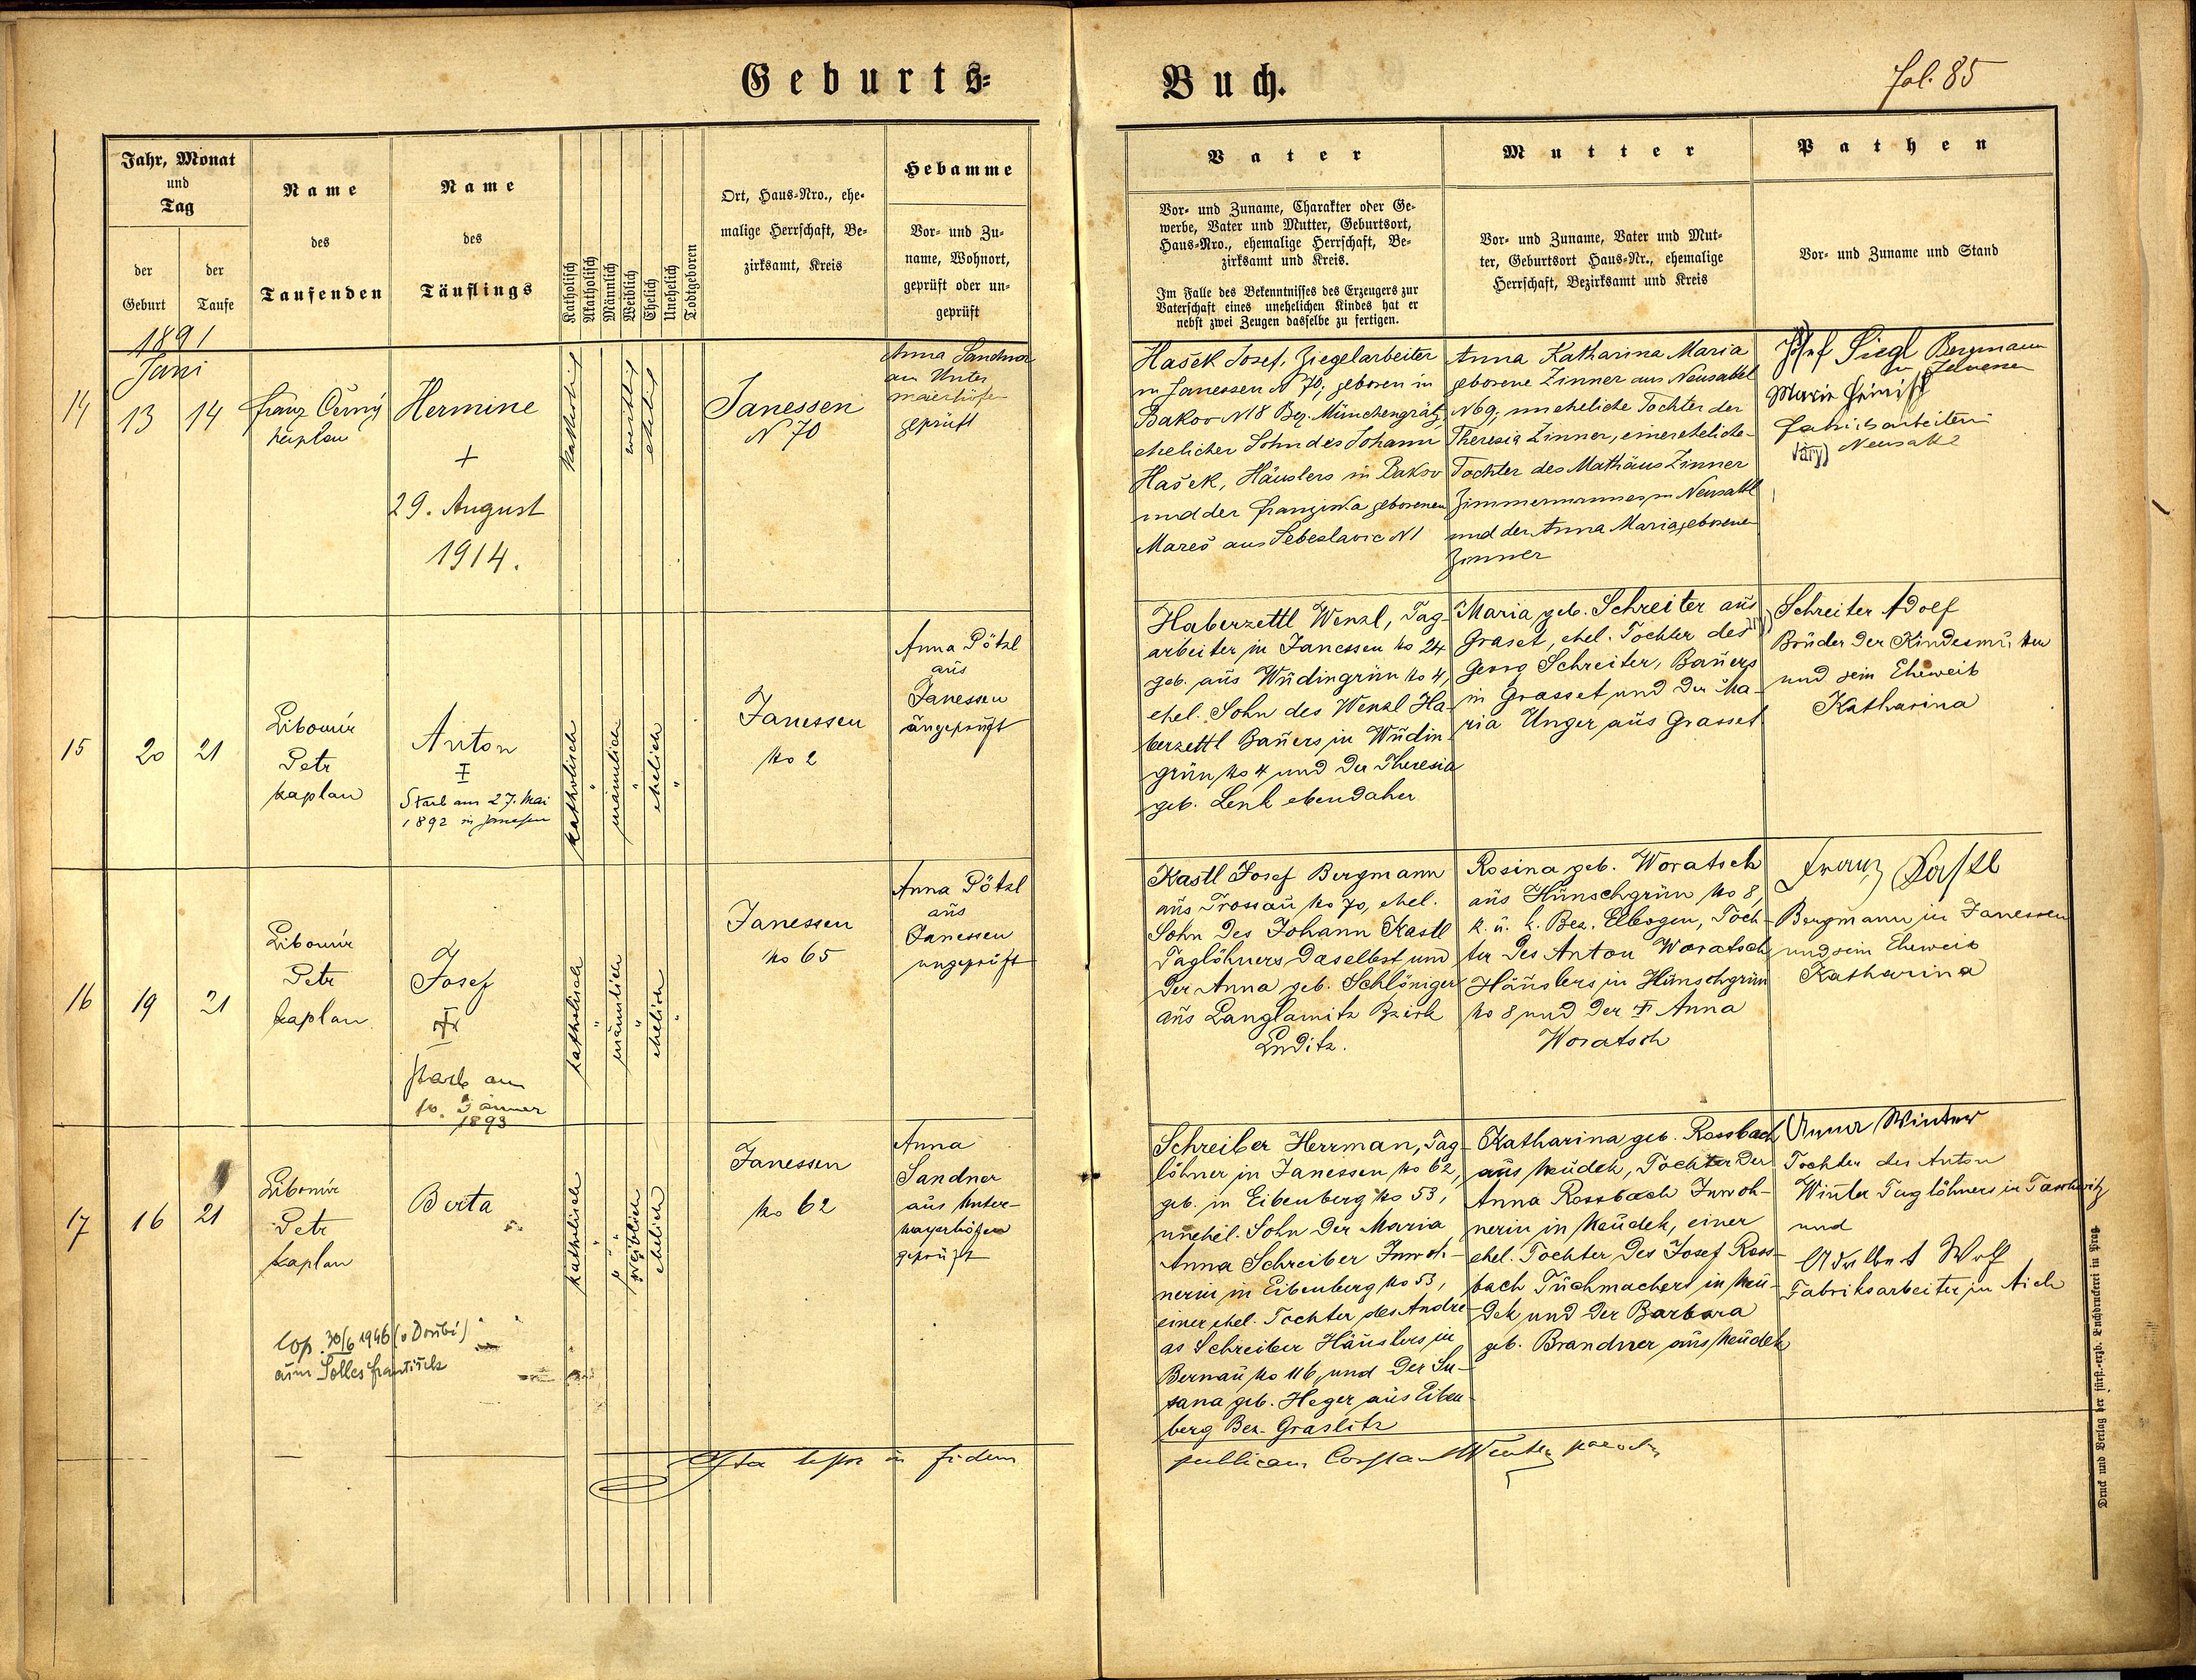 Geburts-
Buch.
fol. 85
Jahr, Monat
und
Tag
der
Geburt
der
Taufe
Name
des
Taufenden
Name
des
Täuflings
Katholisch
Akatholisch
Männlich
Weiblich
Ehelich
Unehelich
Todtgeboren
Ort, Haus-Nro., ehe-
malige Herrschaft, Be-
zirksamt, Kreis
Hebamme
Vor- und Zu-
name, Wohnort,
geprüft oder un-
geprüft
Vater
Vor- und Zuname, Charakter oder Ge-
werbe, Vater und Mutter, Geburtsort,
Haus-Nro., ehemalige Herrschaft, Be-
zirksamt und Kreis.
Im Falle des Bekenntnisses des Erzeugers zur
Vaterschaft eines unehelichen Kindes hat er
nebst zwei Zeugen dasselbe zu fertigen.
Mutter
Vor- und Zuname, Vater und Mut-
ter, Geburtsort Haus-Nr., ehemalige
Herrschaft, Bezirksamt und Kreis
Pathen
Vor- und Zuname und Stand
1891
Juni
14
13
14
Franz Černý
kaplan
Hermine
+
29. August
1914.
katholisch
weiblich
ehelich
Janessen
N 70
Anna Sandner
aus Unter
maierhöfen
geprüft
Hašek Josef, Ziegelarbeiter
in Janessen N 70, geboren in
Bakov N 18 Bez. Münchengrätz,
ehelicher Sohn des Johann
Hašek, Häuslers in Bakov
und der Franziska geborenen
Mareš aus N 1
Anna Katharina Maria
geborene Zinner aus Neusattel
N 69, uneheliche Tochter der
Theresia Zinner, einer eheliche-
Tochter des Mathäus Zinner
Zimmermannes in Neusattl
und der Anna Maria geborene
Zinner
Josef Siegl Bergmann
Marie
Fabriksarbeiterin
Neusattl
15
20
21
Libomír
Petr
kaplan
Anton
Starb am 27. Mai
1892 in Janessen
katholisch
"
männlich
"
ehelich
"
Janessen
No 2
Anna Pötzl
aus
Janessen
ungeprüft
Haberzettl Wenzl, Tag-
arbeiter in Janessen No 24
geb. aus Wudingrün No 4,
ehel. Sohn des Wenzl Ha-
berzettl Bauers in Wudin-
grün No 4 und der Theresia
geb. Lenk ebendaher
Maria geb. Schreiter aus
Graset, ehel. Tochter des
Georg Schreiter, Bauers
in Grasset und der Ma-
ria Unger aus Grasset
Schreiter Adolf
Bruder der Kindesmutter
und sein Eheweib
Katharina
16
19
21
Libomír
Petr
kaplan
Josef
starb am
10. Jänner
1893
katholisch
"
männlich
"
ehelich
"
Janessen
No 65
Anna Pötzl
aus
Janessen
ungeprüft
Kastl Josef Bergmann
aus Trossau No 70, ehel.
Sohn des Johann Kastl
Taglöhners daselbst und
der Anna geb. Schlöniger
aus Langlamitz Bzirk
Luditz.
Rosina geb. Woratsch
aus Hünschgrün No 8,
k. u. k. Bez. Elbogen, Toch-
ter des Anton Woratsch
Häuslers in Hünschgrün
No 8 und der † Anna
Woratsch
Franz Kastl
Bergmann in Janessen
und sein Eheweib
Katharina
17
16
21
Libomír
Petr
kaplan
Berta
cop. 30/6 1946 (v Doubí)
cum Solles František
katholisch
"
"
"
Weiblich
ehelich
Janessen
No 62
Anna
Sandner
aus Unter-
mayerhöfen
geprüft
Schreiber Herrman, Tag-
löhner in Janessen No 62,
geb. in Eibenberg No 53,
unehel. Sohn der Maria
Anna Schreiber Inwoh-
nerin in Eibenberg No 53,
einer ehel. Tochter des Andre-
as Schreiber Häuslers in
Bernau No 116, und der Su-
sana geb. Heger aus Eiben-
berg Bez. Graslitz
Katharina geb. Rossbach
aus Neudek, Tochter der
Anna Rossbach Inwoh-
nerin in Neudek, einer
ehel. Tochter des Josef Ross-
bach Tuchmachers in Neu-
dek und der Barbara
geb. Brandner aus Neudek
Anna Winter
Tochter des Anton
Winter Taglöhners in Taschwitz
und
Adalbert Wolf
Fabriksarbeiter in Aich
Ita testor in fidem
publicam
Druck und Verlag der fürst.-erzb. Buchdruckerei in Prag